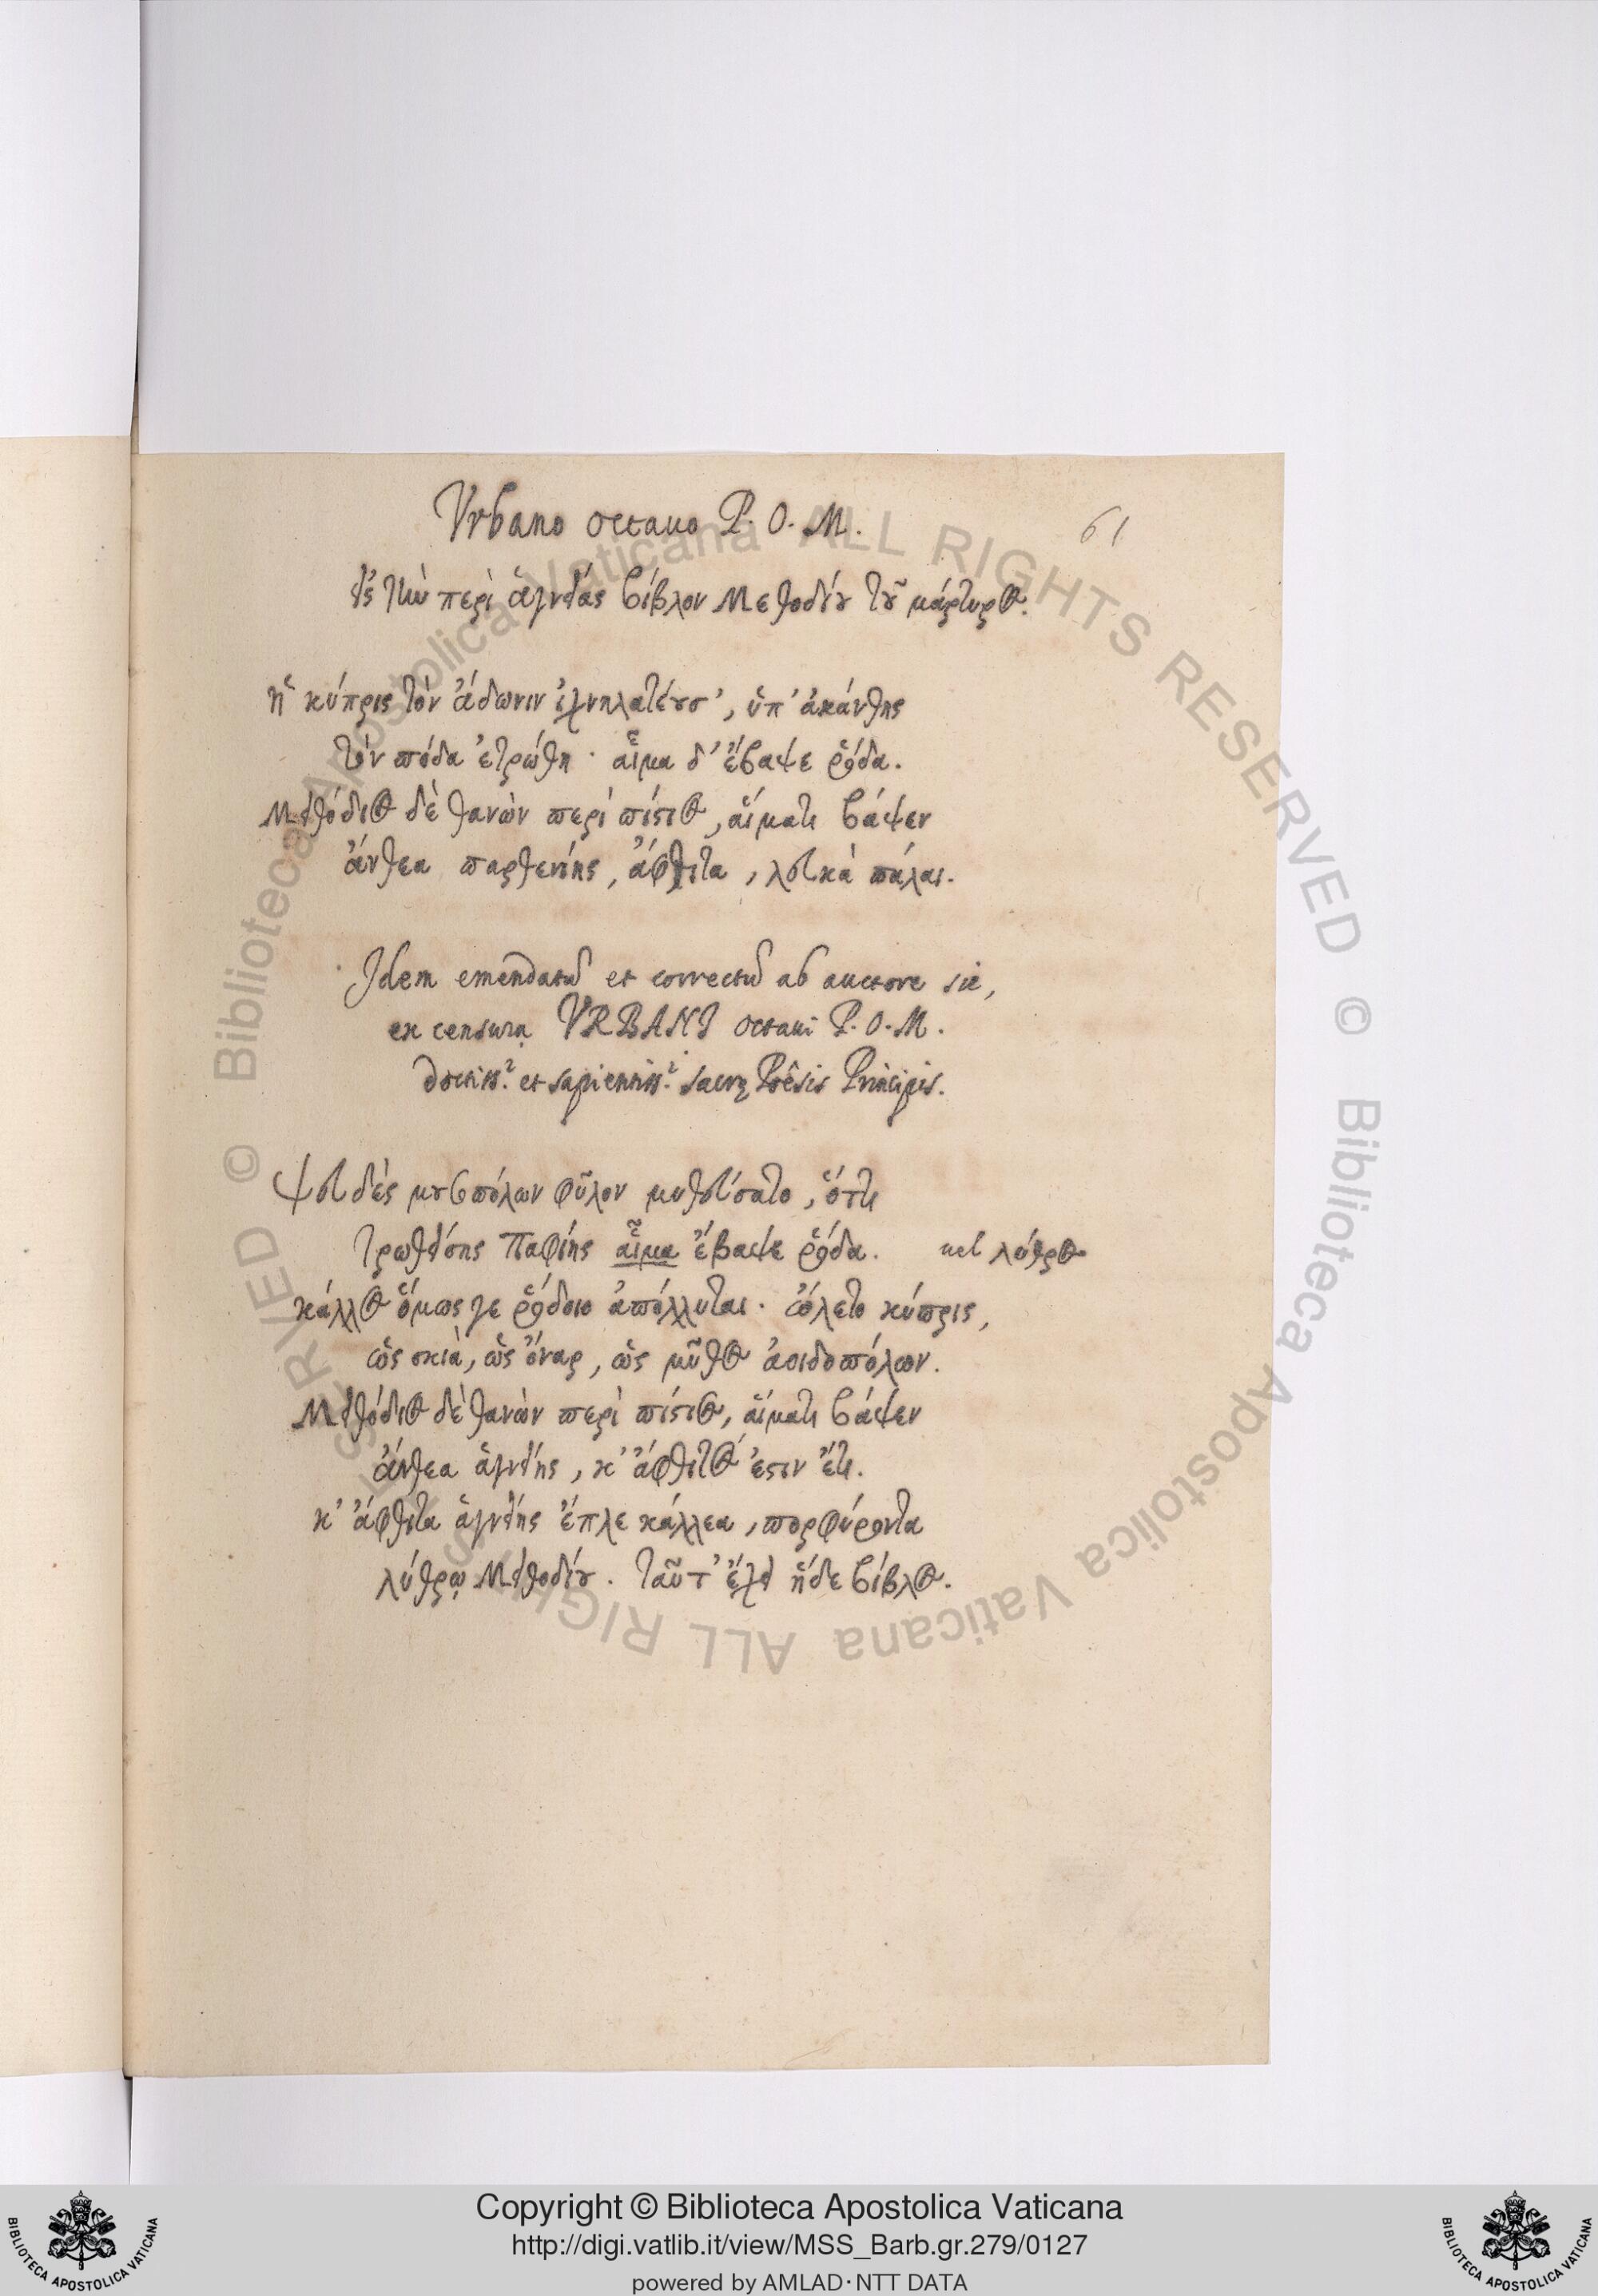 Vrbano octauo P. O. M.
61
εἰς τὴν περὶ ἁγνείας βίβλον Μεθοδίου τοῦ μάρτυρος.
ἡ κύπρις τὸν ἄδωνιν ἰχνηλατέουσ', ὑπ' ἀκάνθης
τὸν πόδα ἐτρώθη · αἷμα δ' ἔβαψε ῥόδα.
Μεθόδιος δὲ θανὼν περὶ πίστιος, αἵματι βάψεν
ἄνθεα παρθενίης, ἄφθιτα, λευκὰ πάλαι.
Idem emendatū et correctū ab auctore sic,
ex censura VRBANI octaui P. O. M.
doctiss.i et sapientiss.i sacrę Poêsis Principis.
Ψευδὲς μουσοπόλων φῦλον μυθεύσατο, ὅττι
τρωθείσης Παφίης αἷμα ἔβαψε ῥόδα. uel λύθρος
κάλλος ὅμως γε ῥόδοιο ἀπόλλυται · ὤλετο κύπρις,
ὡς σκιὰ, ὡς ὄναρ, ὡς μῦθος ἀοιδοπόλων.
Μεθόδιος δὲ θανὼν περὶ πίστιος, αἵματι βάψεν
ἄνθεα ἁγνείης, κ' ἄφθιτός ἐστιν ἔτι.
κ' ἄφθιτα ἁγνείης ἔπλε κάλλεα, πορφύροντα
λύθρῳ Μεθοδίου. ταῦτ' ἔχει ἥδε βίβλος.
Copyright © Biblioteca Apostolica Vaticana
http://digi.vatlib.it/view/MSS_Barb.gr.279/0127
powered by AMLAD·NTT DATA
BIBLIOTECA APOSTOLICA VATICANA
BIBLIOTECA APOSTOLICA VATICANA
© Biblioteca Apostolica Vaticana ALL RIGHTS RESERVED © Biblioteca Apostolica Vaticana ALL RIGHTS RESERVED